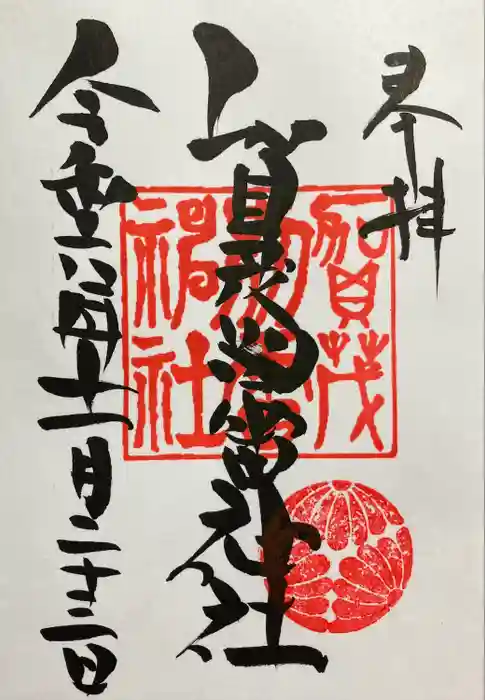 奉拝
賀茂別雷神社
令和年月二十三日
賀茂
別雷
神社